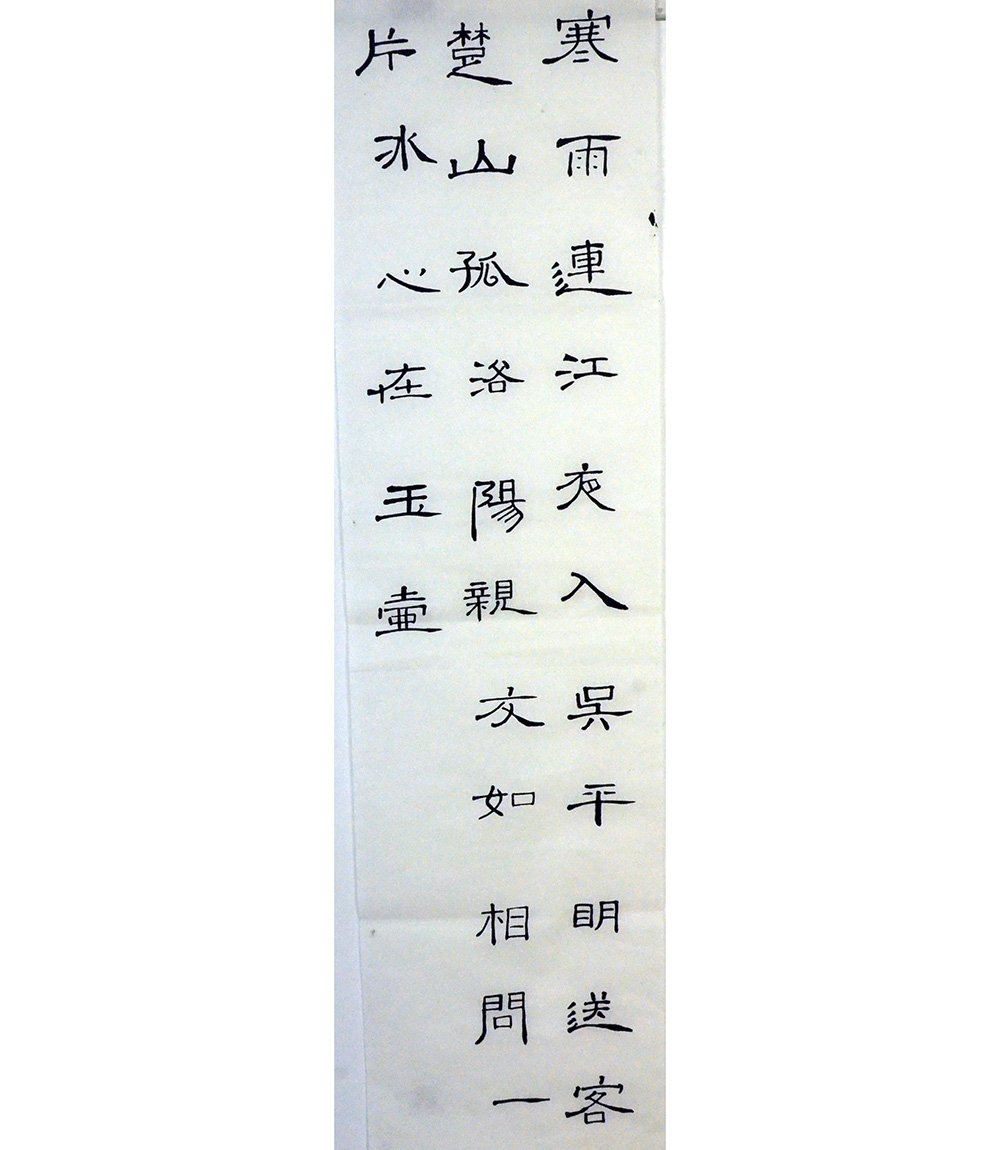 寒雨連江夜入吳平明送客
楚山孤洛陽親友如相問一
片冰心在玉壺